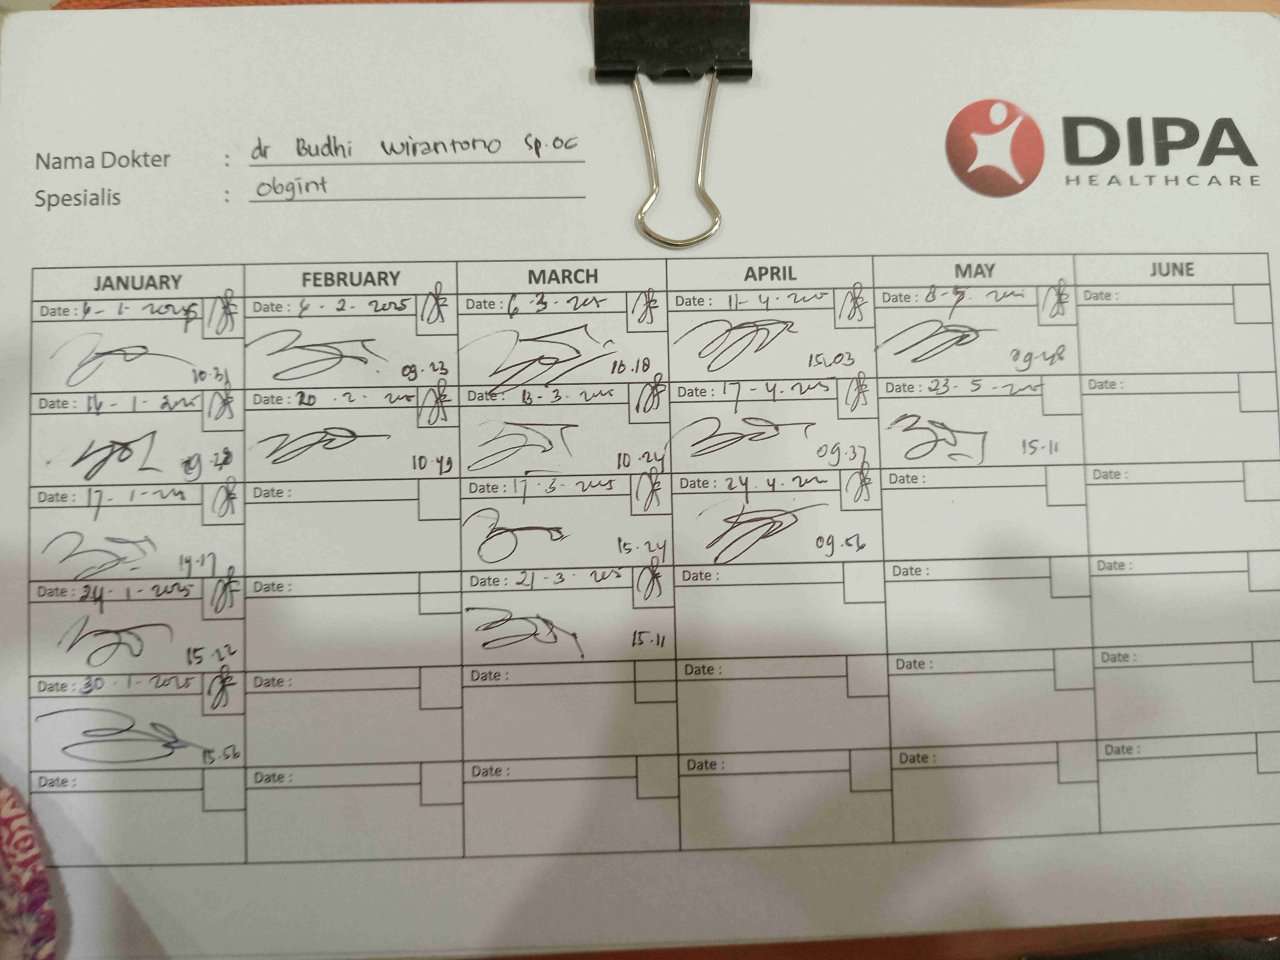 DIPA
HEALTHCARE
Nama Dokter : dr Budhi Wirantono Sp.OG
Spesialis : Obgint
JANUARY FEBRUARY MARCH APRIL MAY JUNE
Date : 6-1-2025 Date : 6-2-2025 Date : 6-3-2025 Date : 11-4-2025 Date : 8-5-2025 Date :
10.31 09.23 16.18 15.03 09.48
Date : 16-1-2025 Date : 20-2-2025 Date : 13-3-2025 Date : 17-4-2025 Date : 23-5-2025 Date :
09.28 10.49 10.24 09.37 15.11
Date : 17-1-2025 Date : Date : 17-3-2025 Date : 24.4.2025 Date : Date :
14.17 15.24 09.56
Date : 24-1-2025 Date : Date : 21-3-2025 Date : Date : Date :
15.22 15.11
Date : 30-1-2025 Date : Date : Date : Date : Date :
15.56
Date : Date : Date : Date : Date : Date :